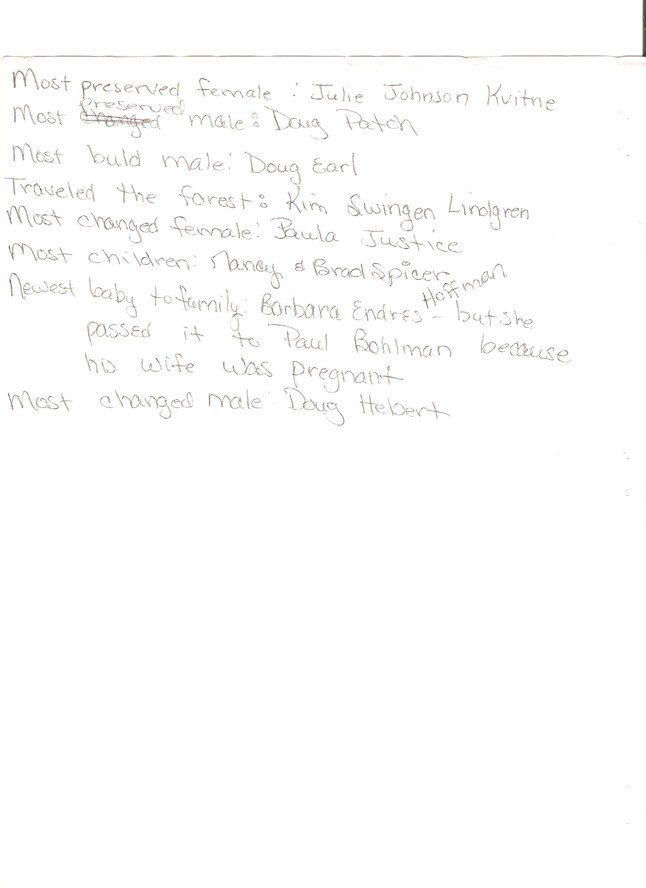 Most preserved female : Julie Johnson Kvitne
Most changed preserved male : Doug Patch
Most buld male: Doug Earl
Traveled the forest : Kim Swingen Lindgren
Most changed female: Paula Justice
Most children: Nancy & Brad Spicer
Newest baby to family: Barbara Endres Hoffman - but she
passed it to Paul Bohlman because
his wife was pregnant
Most changed male: Doug Hebert